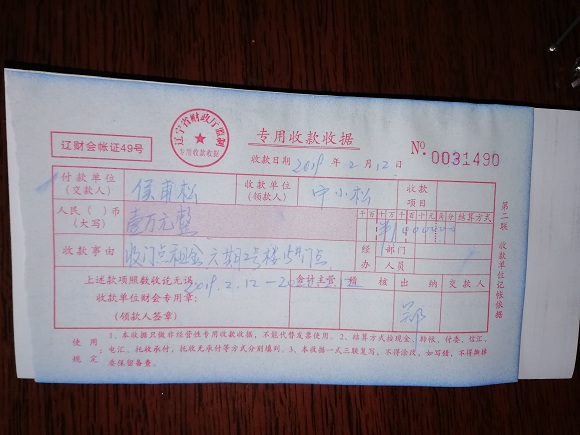 辽财会帐证49号
辽宁省财政厅监制
专用收款收据
专用收款收据
No. 0031490
收款日期 2019年2月12日
付款单位(交款人) 侯甫松 收款单位(领款人) 中小松 收款项目
人民( )币(大写) 壹万元整 千百十万千百十元角分 结算方式
¥1000000
收款事由 收门点租金 六期2号楼 门点 经办 部门人员
2019.2.12-20
上述款项照数收讫无误。 会计主管 稽核 出纳 交款人
收款单位财会专用章:
(领款人签章) 郑
第二联 收款单位记帐依据
使用规定
1、本收据只做非经营性专用收款收据,不能代替发票使用。2、结算方式按现金、转帐、付委、信汇、
电汇、托收承付,托收无承付等方式分别填列。3、本收据一式三联复写,不得涂改,如写错,不得撕掉
要保留备查。